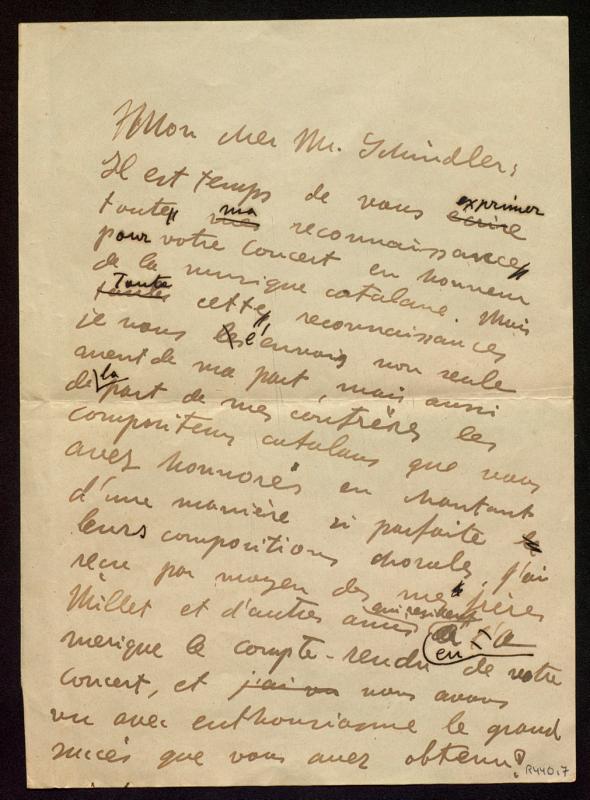 Mon cher Mr. Schindler:
Il est temps de vous ecrire exprimer
toute mes ma reconnaissance
pour votre concert en honneur
de la musique catalane. Mais
toutes Toute cette reconnaissances
je vous les l'envois non seule
ment de ma part, mais aussi
de la part de mes confrères les
compositeurs catalans que vous
avez honnorés en chantant
d'une manière si parfaite
leurs compositions chorales. J'ai
reçu par moyen des mes frères
Millet et d'autres amis qui resident en
merique le compte-rendu de votre
concert, et j'ai vu nous avons
vu avec enthousiasme le grand
succés que vous avez obtenu!
R440.7